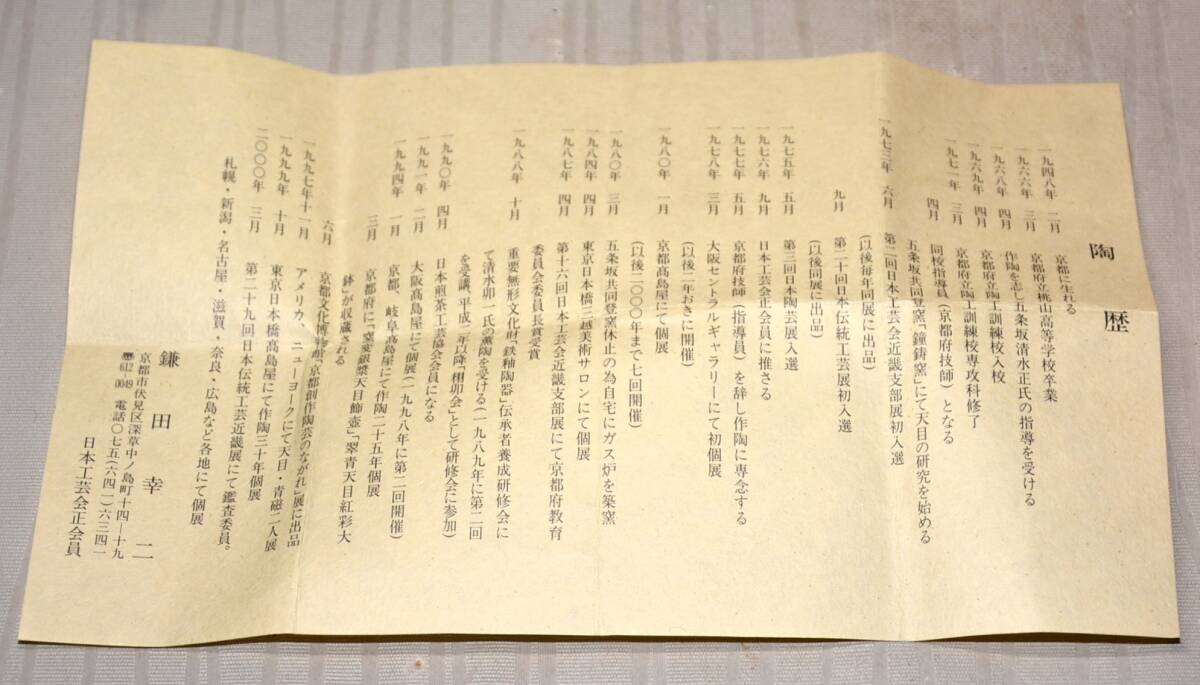 陶歴
一九四八年 二月 京都に生れる
一九六六年 三月 京都府立桃山高等学校卒業
作陶を志し五条坂清水正氏の指導を受ける
一九六八年 四月 京都府立陶工訓練校入校
一九六九年 四月 京都府立陶工訓練校専攻科修了
一九七一年 三月
四月 同校指導員(京都府技師)となる
五条坂共同登窯「鐘鋳窯」にて天目の研究を始める
一九七三年 六月 第二回日本工芸会近畿支部展初入選
(以後毎年同展に出品)
九月 第二十回日本伝統工芸展初入選
(以後同展に出品)
一九七五年 五月 第三回日本陶芸展入選
一九七六年 九月 日本工芸会正会員に推さる
一九七七年 五月 京都府技師(指導員)を辞し作陶に専念する
一九七八年 三月 大阪セントラルギャラリーにて初個展
(以後二年おきに開催)
一九八〇年 一月 京都髙島屋にて個展
(以後二〇〇〇年まで七回開催)
一九八〇年 三月 五条坂共同登窯休止の為自宅にガス炉を築窯
一九八四年 四月 東京日本橋三越美術サロンにて個展
一九八七年 四月 第十六回日本工芸会近畿支部展にて京都府教育
委員会委員長賞受賞
一九八八年 十月 重要無形文化財「鉄釉陶器」伝承者養成研修会に
て清水卯一氏の薫陶を受ける(一九八九年に第二回
を受講、平成二年以降「栩卯会」として研修会に参加)
一九九〇年 四月 日本煎茶工芸協会会員になる
一九九一年 二月 大阪髙島屋にて個展(一九九八年に第二回開催)
一九九四年 一月 京都、岐阜髙島屋にて作陶二十五年個展
三月 京都府に「窯変銀漿天目飾壺」「翠青天目紅彩大
鉢」が収蔵される
六月 京都文化博物館「京都創作陶芸のながれ」展に出品
一九九七年十一月 アメリカ、ニューヨークにて天目・青磁二人展
一九九九年 十月 東京日本橋髙島屋にて作陶三十年個展
二〇〇〇年 三月 第二十九回日本伝統工芸近畿展にて鑑査委員。
札幌・新潟・名古屋・滋賀・奈良・広島など各地にて個展
鎌田幸二
京都市伏見区深草中ノ島町十四―十九
〒612-0049 電話〇七五(六四一)六三四一
日本工芸会正会員